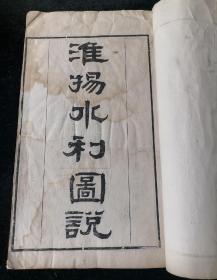 淮揚水利圖說